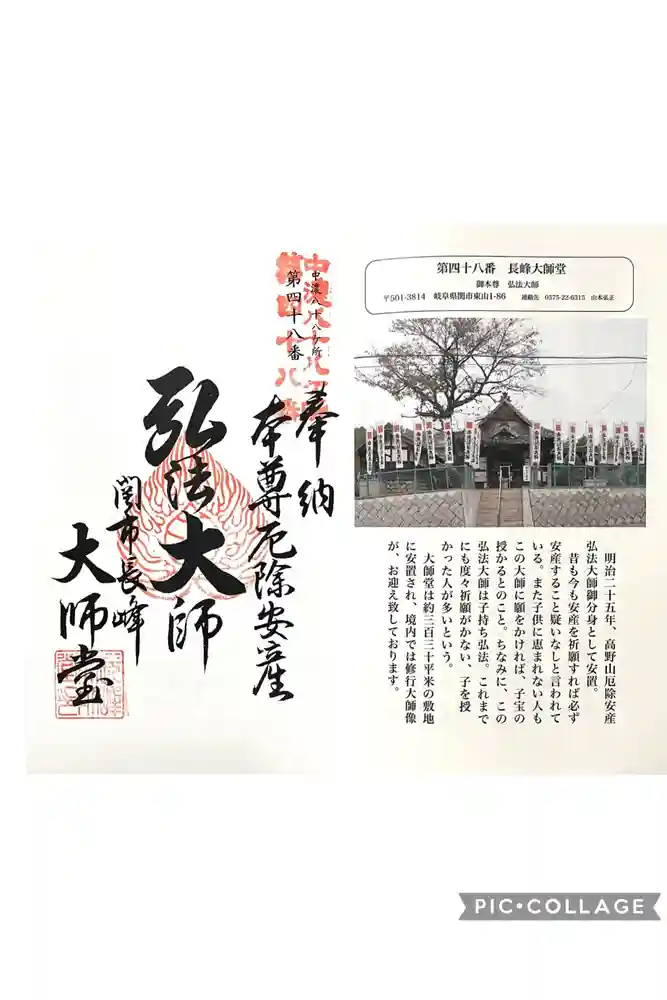 第四十八番　長峰大師堂
御本尊　弘法大師
〒501-3814　岐阜県関市東山1-86　連絡先　0575-22-6315　山本弘正
明治二十五年、高野山厄除安産
弘法大師御分身として安置。
昔も今も安産を祈願すれば必ず
安産すること疑いなしと言われて
いる。また子供に恵まれない人も
この大師に願をかければ、子宝の
授かるとのこと。ちなみに、この
弘法大師は子持ち弘法。これまで
にも度々祈願がかない、子を授
かった人が多いという。
大師堂は約三百三十平米の敷地
に安置され、境内では修行大師像
が、お迎え致しております。
中濃八十八ヶ所
第四十八番
奉納
本尊厄除安産
弘法大師
関市長峰
大師堂
PIC•COLLAGE